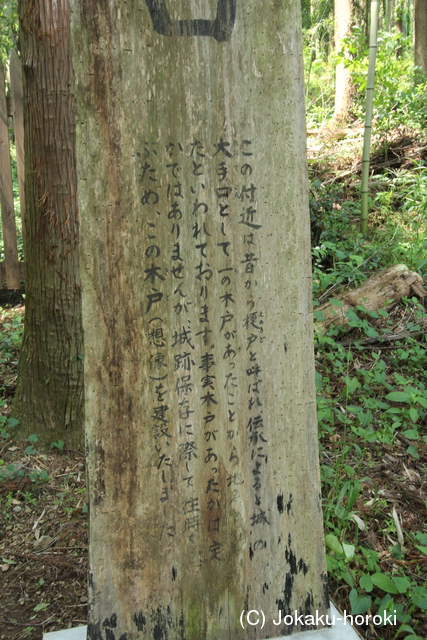 この付近は昔から榎戸と呼ばれ伝承によると城の
大手口として一の木戸があったことから地
たといわれております。事実木戸があったかは定
かではありませんが城跡保存に際して往時を
ぶため、この木戸(想像)を建設いたしました。
(C) Jokaku-horoki